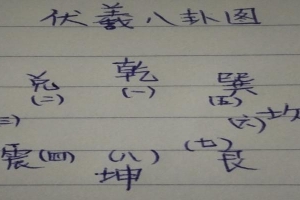 伏羲八卦图
兑 乾 巽
(二) (一) (五)
三) (六) 坎
震(四) (八) (七)艮
坤